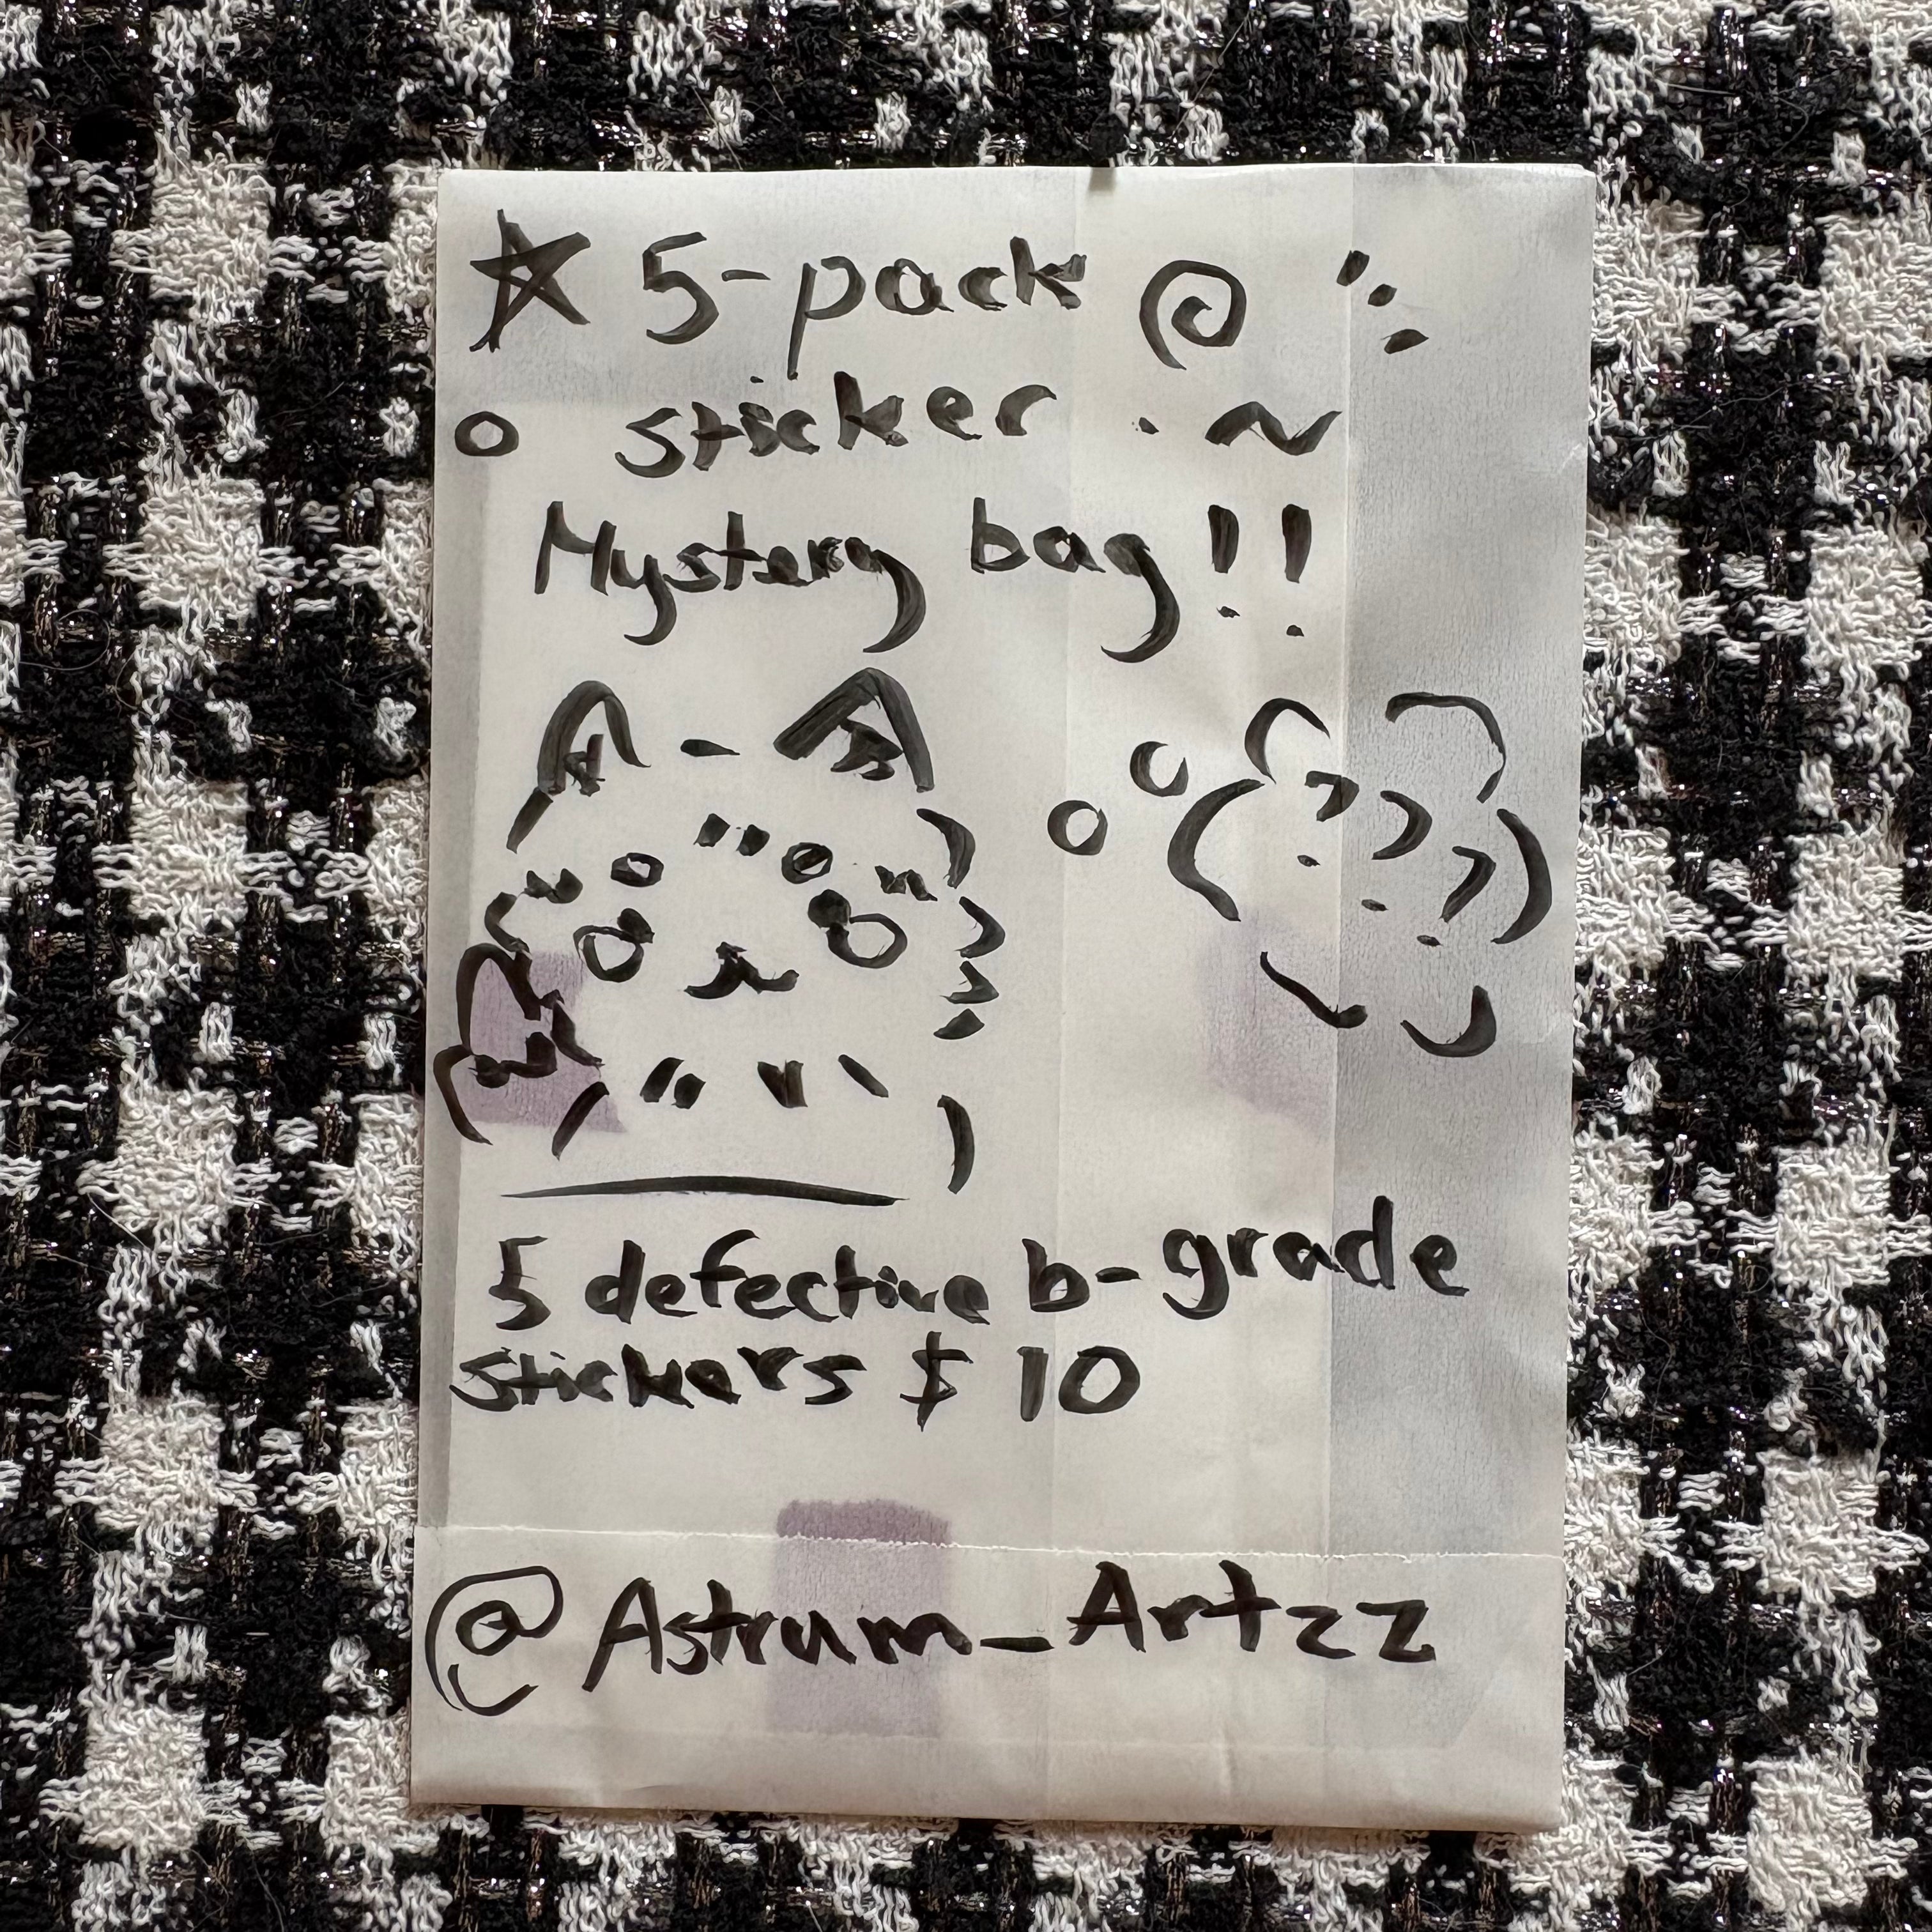 5-pack
sticker
Mystery bag!!
???
5 defective b-grade
stickers $10
@Astrum_Artzz